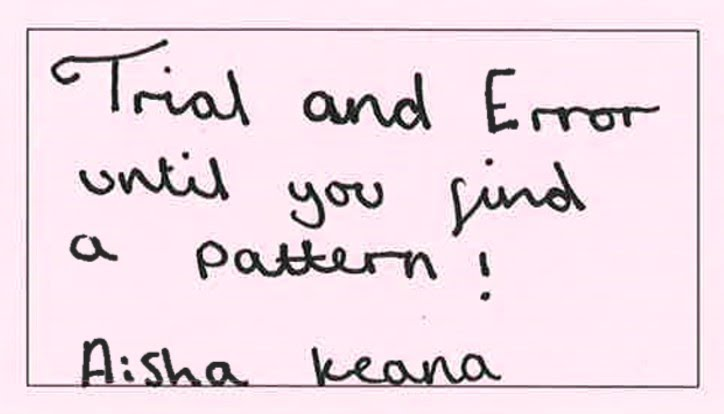 Trial and Error
until you find
a pattern!
Aisha Keana